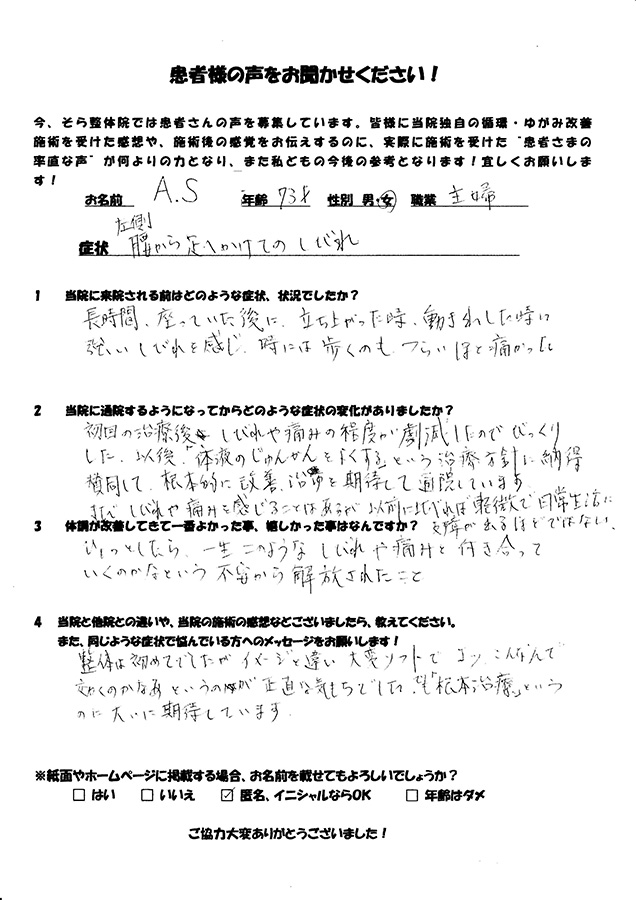 患者様の声をお聞かせください！
今、そら整体院では患者さんの声を募集しています。皆様に当院独自の循環・ゆがみ改善
施術を受けた感想や、施術後の感覚をお伝えするのに、実際に施術を受けた“患者さまの
率直な声”が何よりの力となり、また私どもの今後の参考となります！宜しくお願いしま
す！
お名前 A.S 年齢 73才 性別 男・女 職業 主婦
左側
症状 腰から足へかけてのしびれ
1 当院に来院される前はどのような症状、状況でしたか？
長時間、座っていた後に、立ち上がった時、動きだした時に
強いしびれを感じ、時には歩くのも、つらいほど痛かった
2 当院に通院するようになってからどのような症状の変化がありましたか？
初回の治療後、しびれや痛みの程度が劇減したのでびっくり
した。以後、「体液のじゅんかんをよくする」という治療方針に納得
賛同して、根本的に改善、治ゆを期待して通院しています。
まだしびれや痛みを感じることはあるが以前に比べれば軽微で日常生活に
支障が出るほどではない、
3 体調が改善してきて一番よかった事、嬉しかった事はなんですか？
ひょっとしたら、一生このようなしびれや痛みと付き合って
いくのかなという不安から解放されたこと
4 当院と他院との違いや、当院の施術の感想などございましたら、教えてください。
また、同じような症状で悩んでいる方へのメッセージをお願いします！
整体は初めてでしたがイメージと違い大変ソフトで、こんなんで
効くのかなあというのが正直な気もちでした、でも「根本治療」という
のに大いに期待しています。
※紙面やホームページに掲載する場合、お名前を載せてもよろしいでしょうか？
□ はい □ いいえ ☑ 匿名、イニシャルならOK □ 年齢はダメ
ご協力大変ありがとうございました！